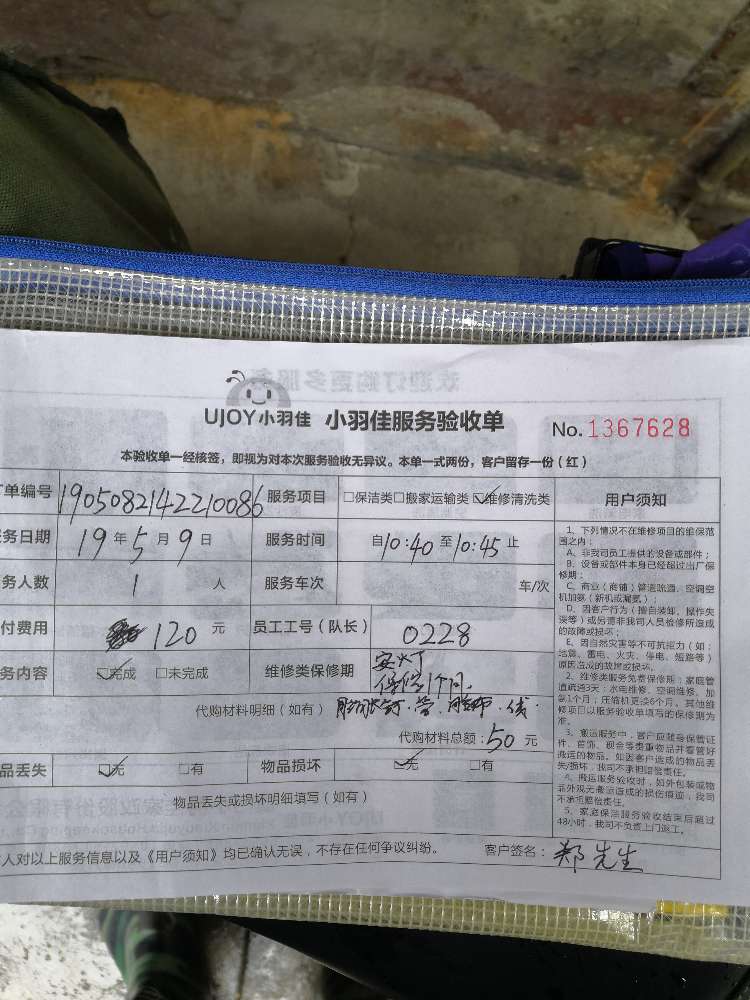 UJOY小羽佳 小羽佳服务验收单 No.1367628
本验收单一经核签，即视为对本次服务验收无异议。本单一式两份，客户留存一份（红）
单编号 1905082142210086 服务项目 □保洁类□搬家运输类☑维修清洗类 用户须知
务日期 19年5月9日 服务时间 自10:40至10:45止
务人数 1 人 服务车次 车/次
付费用 120 元 员工工号（队长） 0228
务内容 ☑完成 □未完成 维修类保修期 安灯
保修1个月
代购材料明细（如有）
代购材料总额：50 元
品丢失 ☑无 □有 物品损坏 ☑无 □有
物品丢失或损坏明细填写（如有）
人对以上服务信息以及《用户须知》均已确认无误，不存在任何争议纠纷。 客户签名：郑先生
1、下列情况不在维修项目的维保范
围之内：
A、非我司员工提供的设备或部件；
B、设备或部件本身已经超过出厂保
修期；
C、商业（商铺）管道疏通、空调空
机加氨（新机或漏氮）；
D、因客户行为（擅自装卸、操作失
误等）或另请非我司人员检修所造成
的故障或损坏；
E、因自然灾害等不可抗拒力（如：
地震、雷电、火灾、停电、短路等）
原因造成的故障或损坏。
2、维修类服务免费保修期：家庭管
道疏通3天；水电维修、空调维修、加
氨1个月；压缩机更换6个月。其他维
修项目以服务验收单填写的保修期为
准。
3、搬运服务中，客户应随身保管证
件、首饰、现金等贵重物品并看管好
搬运的物品。如因客户造成的物品丢
失/损坏，我司不承担赔偿责任。
4、搬运服务验收时，如外包装或物
品外观无搬运造成的损伤痕迹，我司
不承担赔偿责任。
5、家庭保洁服务验收结束后超过
48小时，我司不负责上门返工。